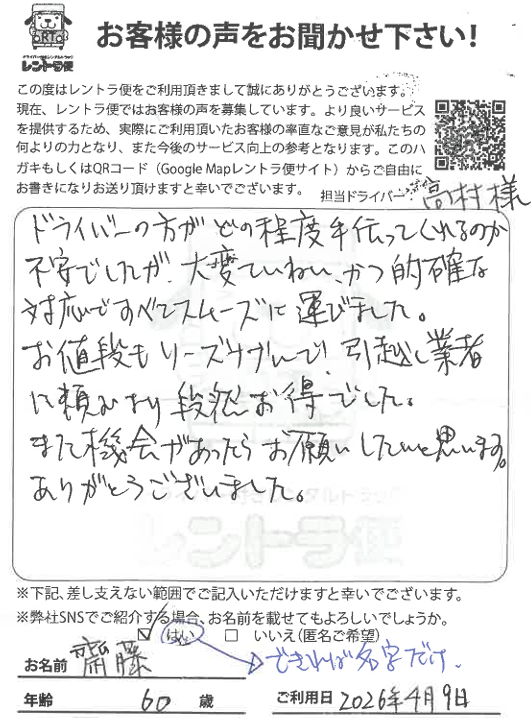 RT
ドライバー付きレンタルトラック
レントラ便
お客様の声をお聞かせ下さい!
この度はレントラ便をご利用頂きまして誠にありがとうございます。
現在、レントラ便ではお客様の声を募集しています。より良いサービス
を提供するため、実際にご利用頂いたお客様の率直なご意見が私たちの
何よりの力となり、また今後のサービス向上の参考となります。このハ
ガキもしくはQRコード(Google Mapレントラ便サイト)からご自由に
お書きになりお送り頂けますと幸いでございます。
担当ドライバー:高村様
ドライバーの方がどの程度手伝ってくれるのか
不安でしたが、大変ていねい、かつ的確な
対応ですべてスムーズに運びました。
お値段もリーズナブルで!引越し業者
に頼むより段然お得でした。
また機会があったらお願いしたいと思います。
ありがとうございました。
ドライバー付きレンタルトラック
レントラ便
※下記、差し支えない範囲でご記入いただけますと幸いでございます。
※弊社SNSでご紹介する場合、お名前を載せてもよろしいでしょうか。
☑ はい □ いいえ(匿名ご希望)
できれば名字だけ。
お名前 齋藤
年齢 60 歳 ご利用日 2026年4月9日